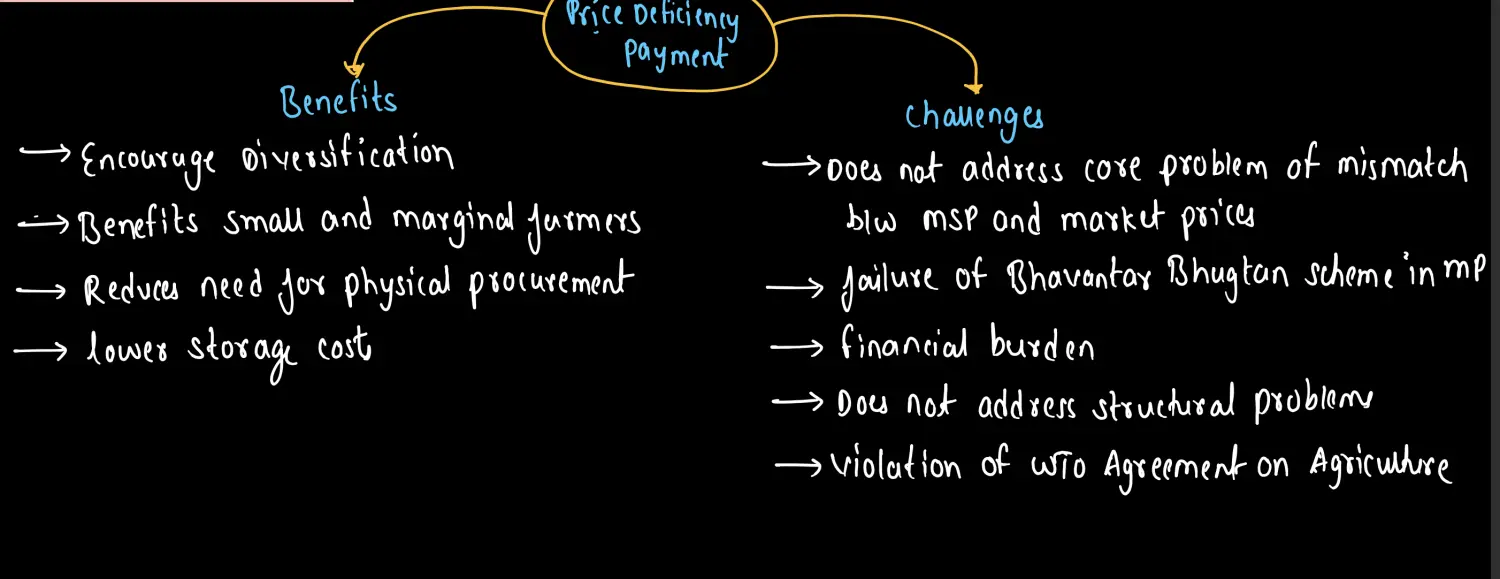 Price Deficiency
Payment
Benefits
→ Encourage Diversification
→ Benefits small and marginal farmers
→ Reduces need for physical procurement
→ lower storage cost
Challenges
→ Does not address core problem of mismatch
b/w MSP and market prices
→ failure of Bhavantar Bhugtan scheme in MP
→ financial burden
→ Does not address structural problems
→ violation of WTO Agreement on Agriculture